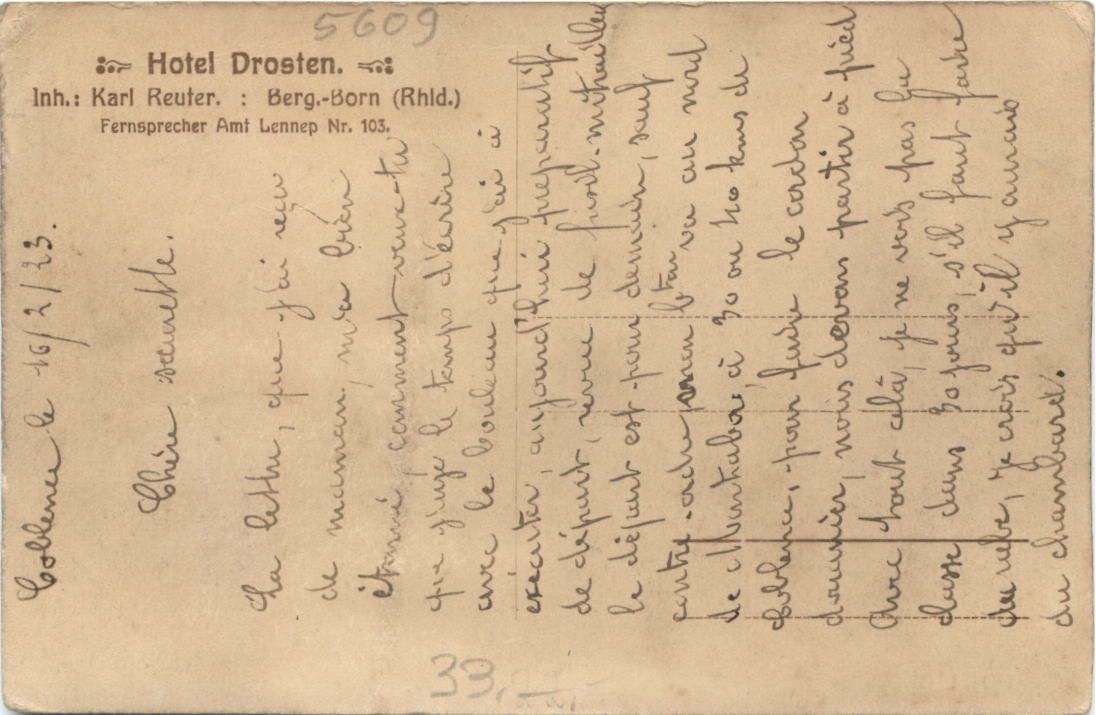 5609
Hotel Drosten.
Inh.: Karl Reuter. : Berg.-Born (Rhld.)
Fernsprecher Amt Lennep Nr. 103.
Coblence le 16/2/23.
Chère sœurette.
La lettre, que j'ai reçu
de maman, m'a bien
étonné, comment veux-tu
que j'aye le temps d'écrire
avec le bouleau que j'ai à
exécuter, aujourd'hui préparatif
de départ, revue de fusil-mitrailleur
le départ est pour demain, sauf
contre-ordre, on va au nord
de Montabor, à 30 ou 40 kms de
Coblence, pour faire le cordon
douanier, nous devons partir à pied
Avec tout celà, je ne vois pas la
classe dans 30 jours, s'il faut faire
du rabe, je crois qu'il y aurais
du chambard.
33,